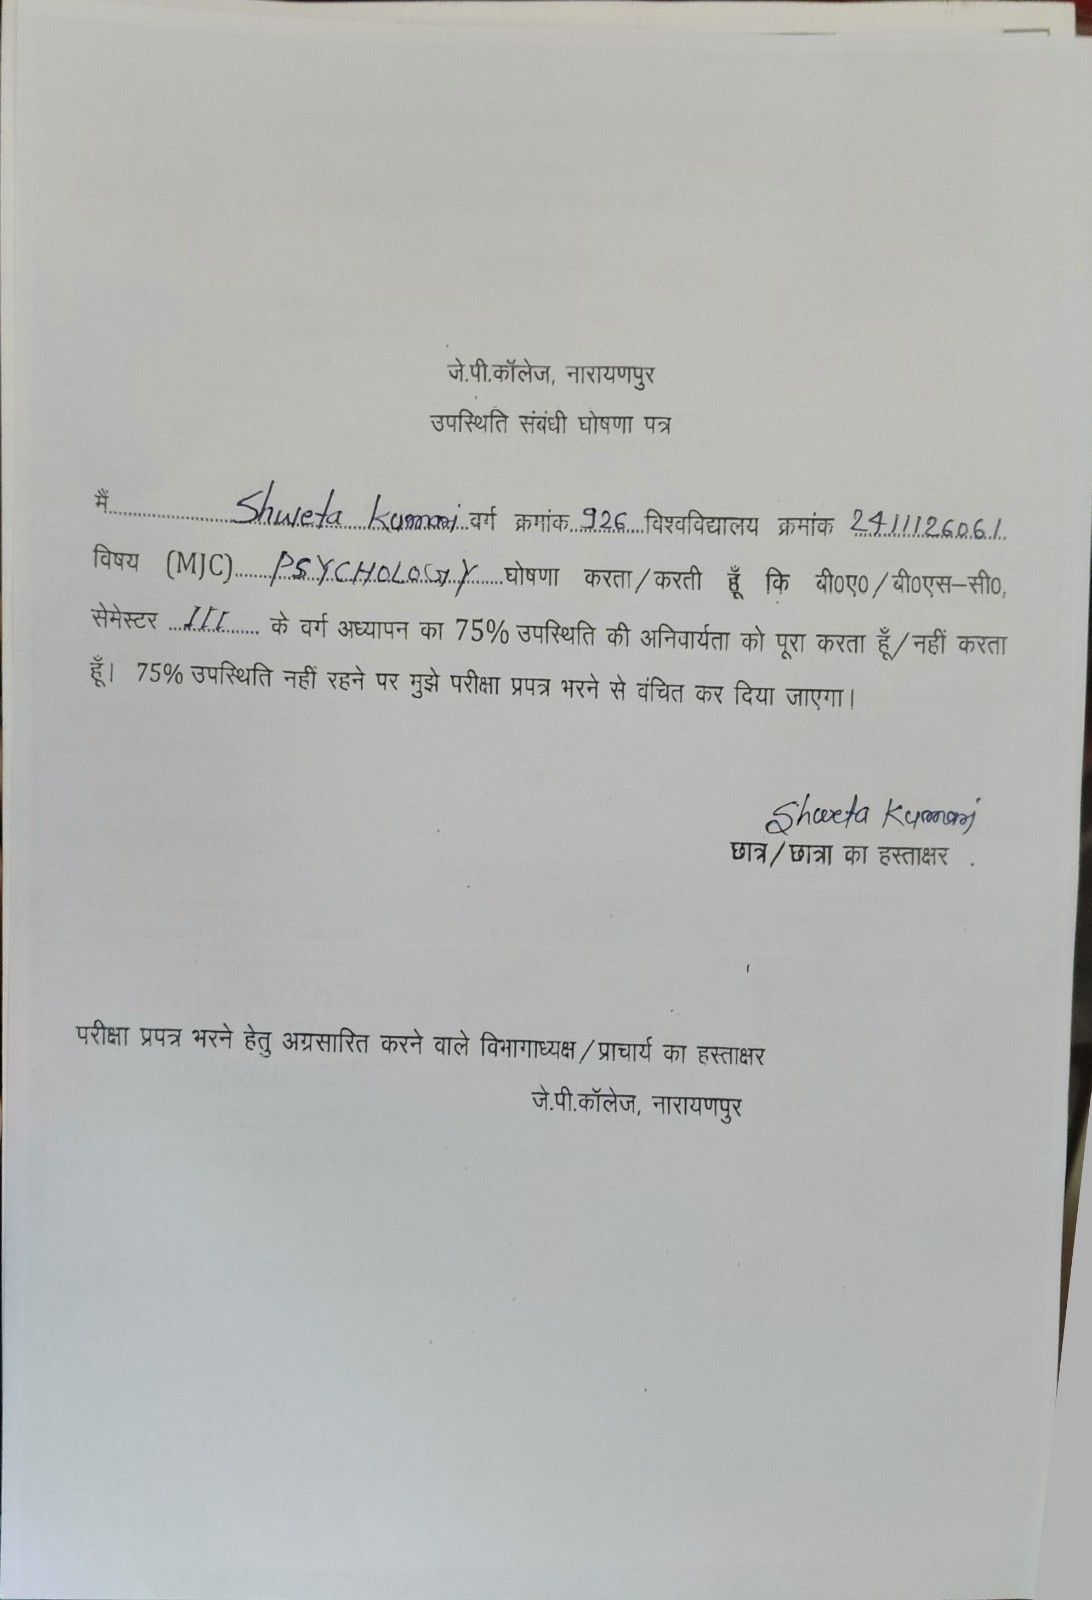 जे.पी.कॉलेज, नारायणपुर
उपस्थिति संबंधी घोषणा पत्र
मैं.......................Shweta Kumari..वर्ग क्रमांक..926..विश्वविद्यालय क्रमांक 24111126061
विषय (MJC)......PSYCHOLOGY......घोषणा करता/करती हूँ कि बी0ए0/बी0एस–सी0,
सेमेस्टर ...III....... के वर्ग अध्यापन का 75% उपस्थिति की अनिवार्यता को पूरा करता हूँ/नहीं करता
हूँ। 75% उपस्थिति नहीं रहने पर मुझे परीक्षा प्रपत्र भरने से वंचित कर दिया जाएगा।
Shweta Kumari
छात्र/छात्रा का हस्ताक्षर .
परीक्षा प्रपत्र भरने हेतु अग्रसारित करने वाले विभागाध्यक्ष/प्राचार्य का हस्ताक्षर
जे.पी.कॉलेज, नारायणपुर